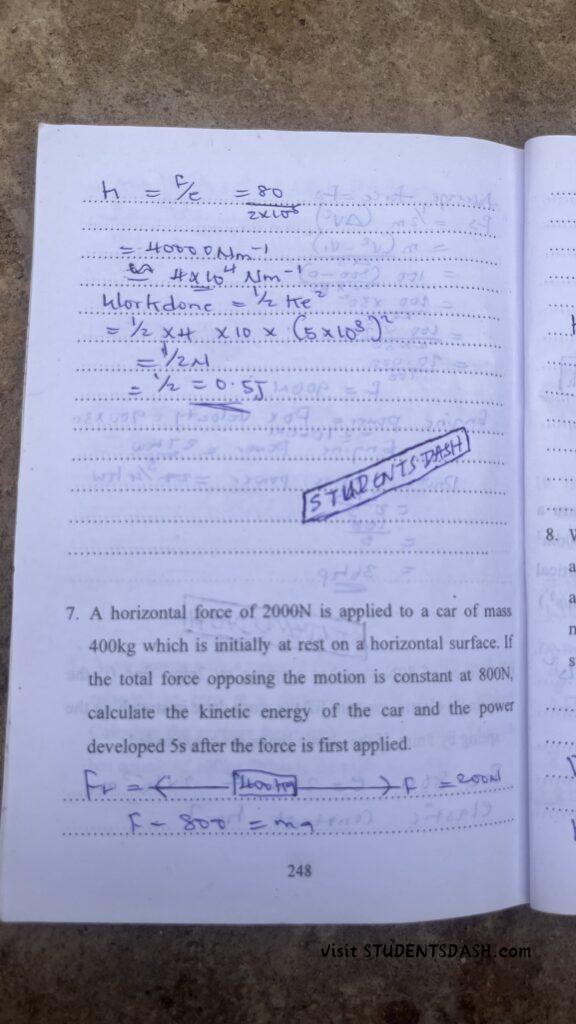 h = F/e = 80
2x10⁸
= 40000Nm⁻¹
4x10⁴ Nm⁻¹
Workdone = ½ Ke²
= ½ x4 x10 x (5x10³)²
= ½N
= ½ = 0.5J
STUDENTS DASH
7. A horizontal force of 2000N is applied to a car of mass
400kg which is initially at rest on a horizontal surface. If
the total force opposing the motion is constant at 800N,
calculate the kinetic energy of the car and the power
developed 5s after the force is first applied.
Fr = 400kg F = 200N
F - 800 = ma
248
8.
Visit STUDENTSDASH.com